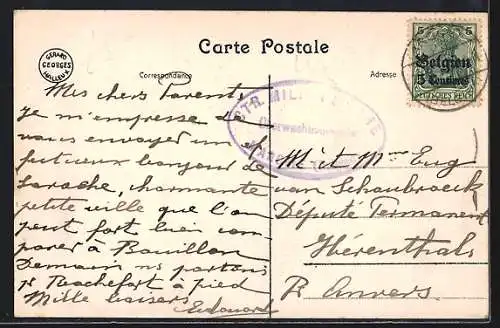 GÉRARD GEORGES HOLLEUX
Carte Postale
Correspondance
Adresse
5 5
Belgien
5 Centimes
DEUTSCHES REICH
MILIT
Mes chers Parents
Je m'empresse de
vous envoyer un
petit bonjour de
Laroche, charmante
petite ville que l'on
peut fort bien com-
parer à Bouillon
Demain ns partons
pr Rochefort à pied
Mille baisers
Edouard
M et Mme Eug
van Schaubroeck
Député Permanent
Hérenthals
Pr Anvers.